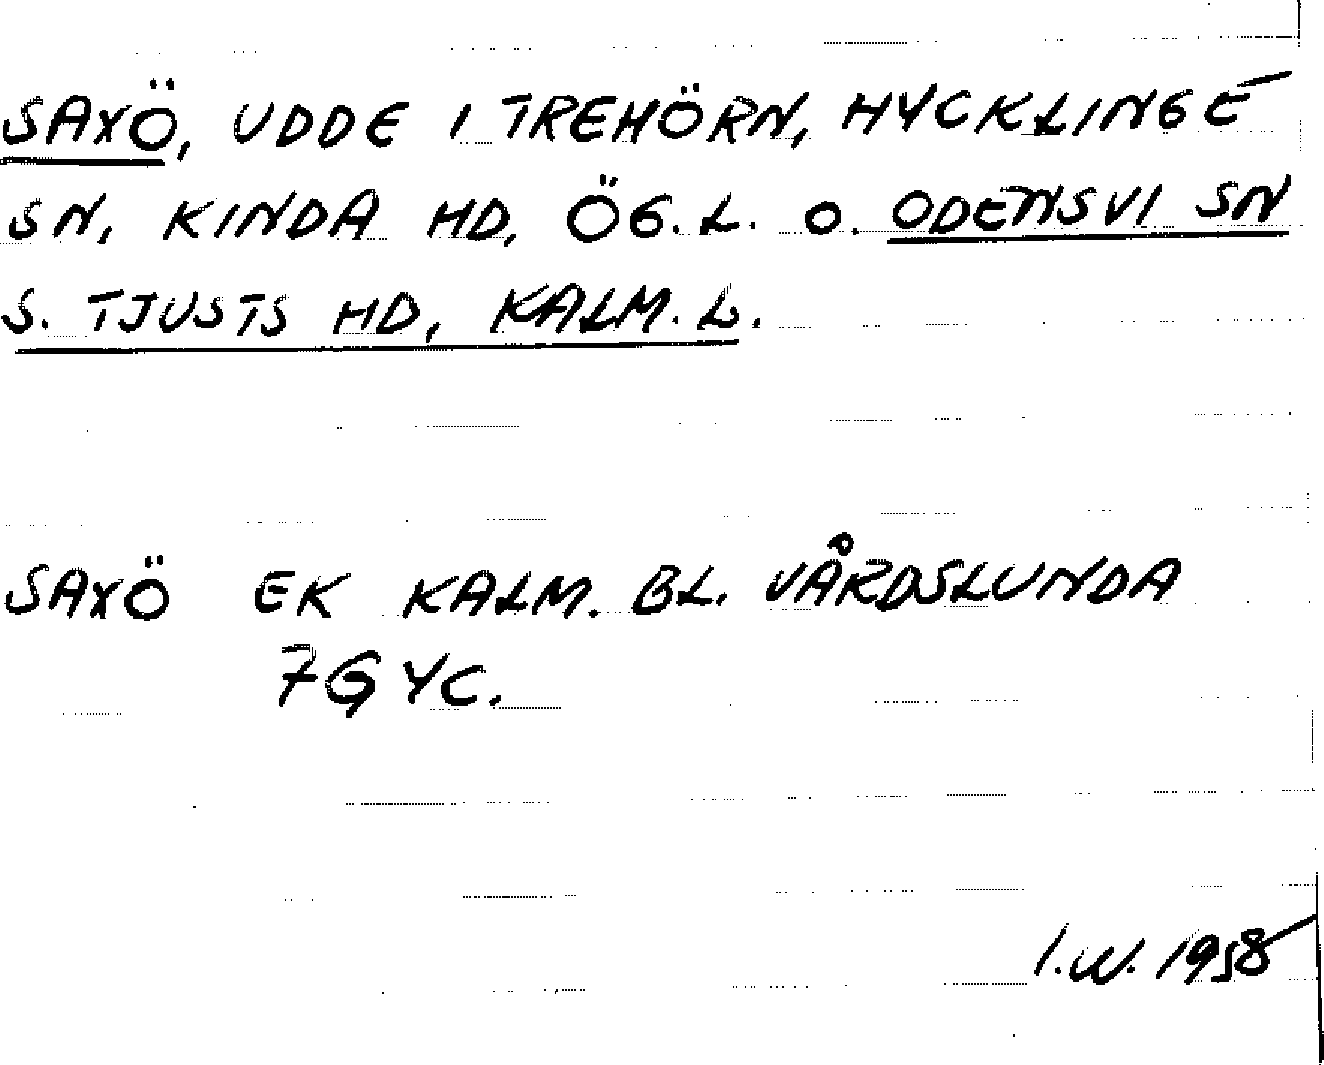 SAXÖ, UDDE I TREHÖRN, HYCKLINGE
SN, KINDA HD, ÖG. L. O. ODENSVI SN
S. TJUSTS HD, KALM. L.
SAXÖ EK KALM. BL. VÅRDSLUNDA
7G YC.
I.W. 1958